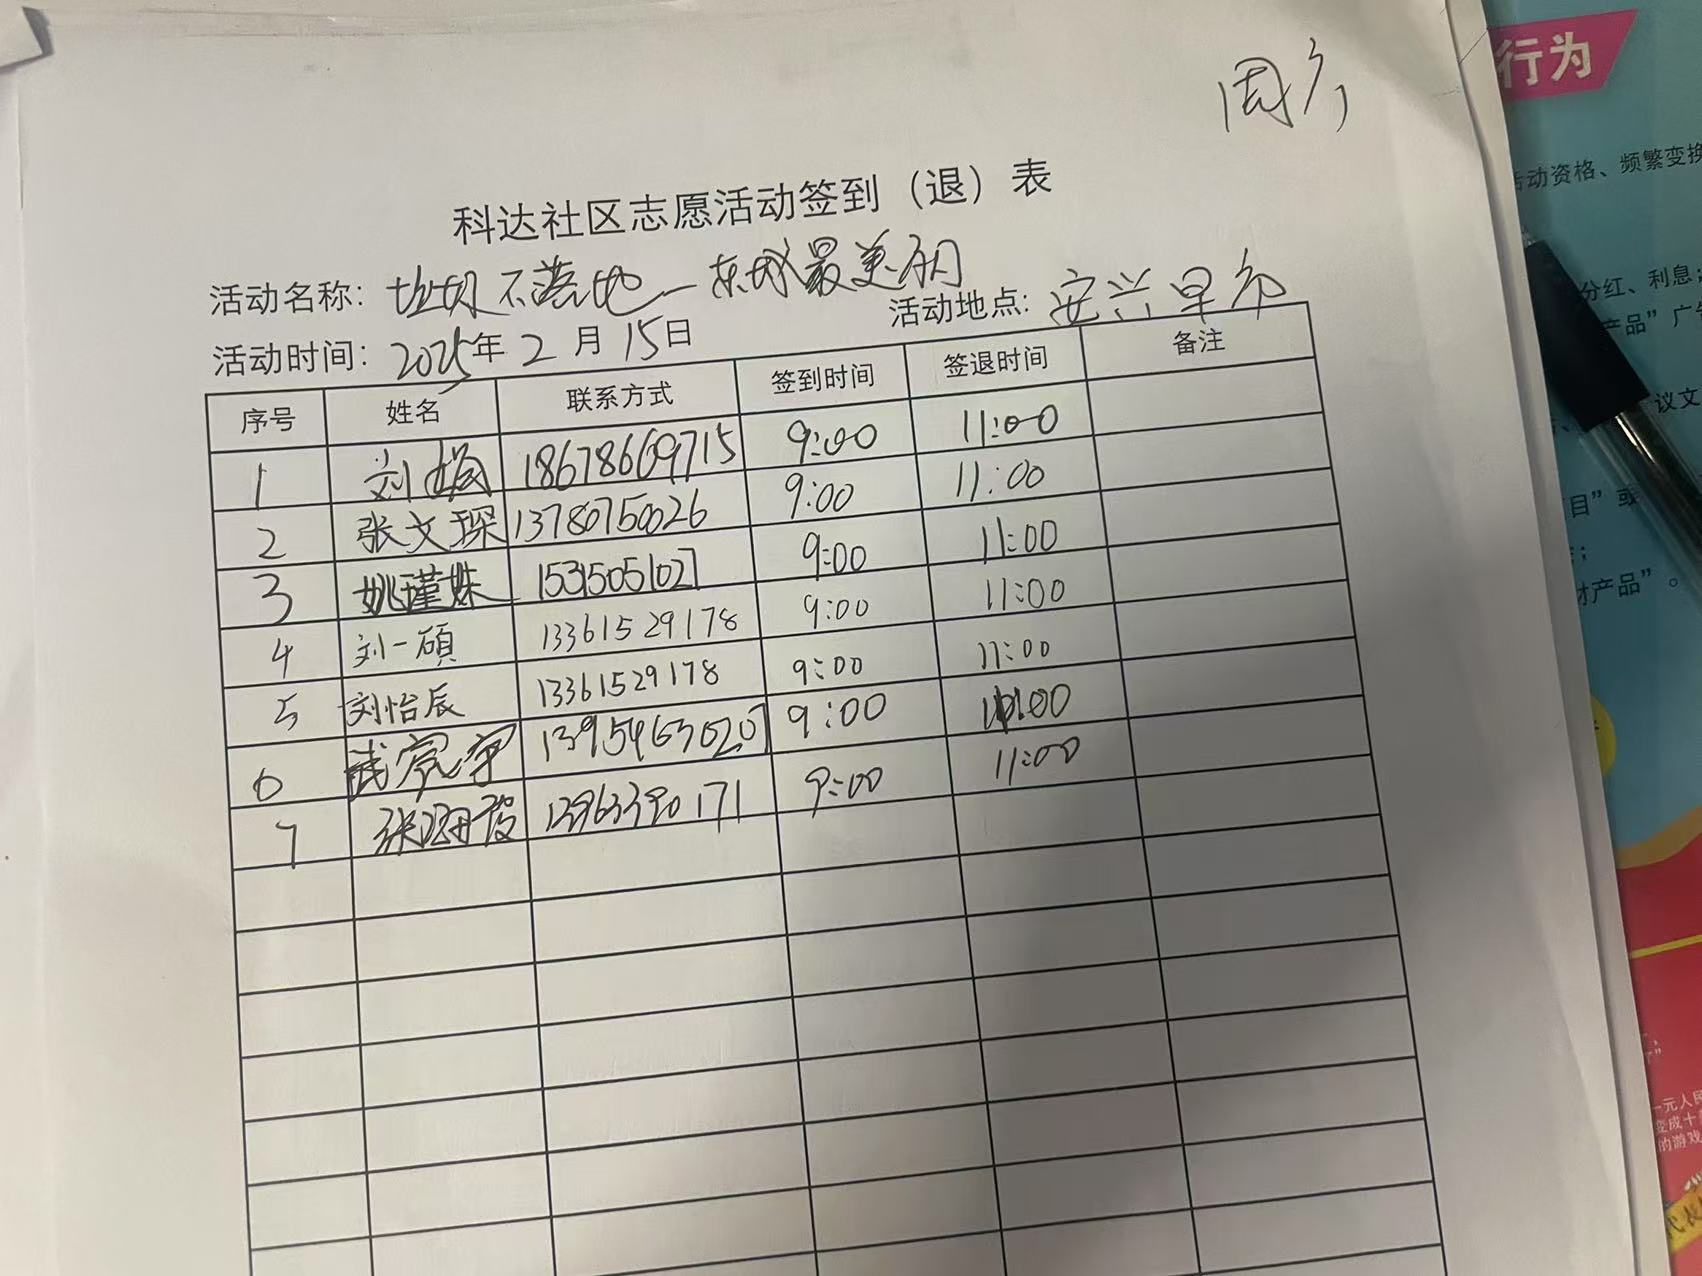 周六
科达社区志愿活动签到（退）表
活动名称：垃圾不落地一东城最美丽
活动时间：2025年2月15日 活动地点：安兴早市
序号 姓名 联系方式 签到时间 签退时间 备注
1 刘 18678669715 9:00 11:00
2 张文琛 13780750026 9:00 11:00
3 姚瑾姝 15315051027 9:00 11:00
4 刘一硕 13361529178 9:00 11:00
5 刘怡辰 13361529178 9:00 11:00
6 武宽宇 13954636207 9:00 11:00
7 张 13963390171 9:00 11:00
行为
活动资格、频繁变换
分红、利息；
产品”广告
议文
目”或
财产品”。
一元人民
变成十
的游戏